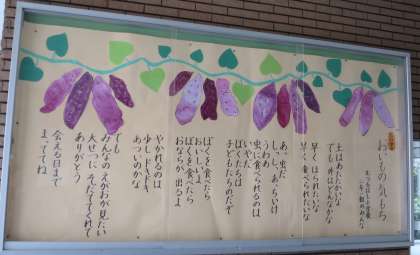 おいもの気もち
土はあたたかいな
でも外はどんなかな
早くほられたいな
早く食べられたいな
あ、虫だ
しっ、しっ、あっちいけ
うわあ
虫に食べられるのは
いやだ
ぼくたちは
子どもたちのだぞ
ぼくを食べたら
おいしいよ
ぼくを食べたら
おならが出るよ
やかれるのは
少しドキドキ
あついのかな
でも
みんなのえがおが見たい
大せつにそだててくれて
ありがとう
会える日まで
まっててね